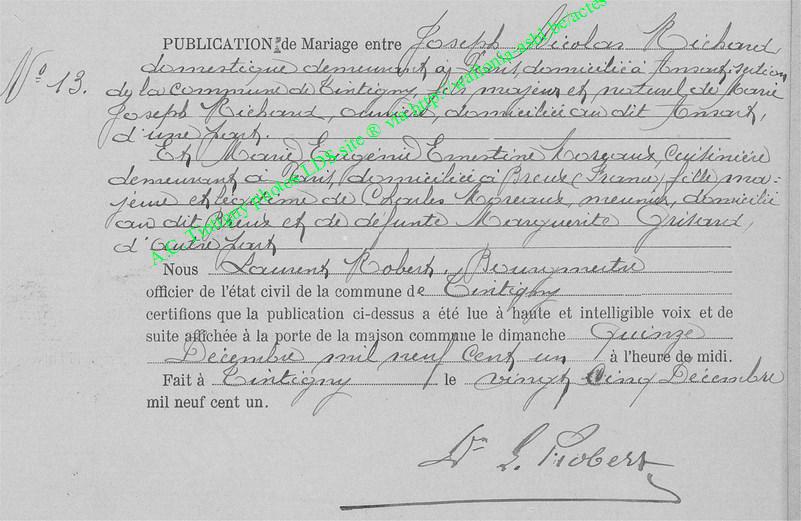 PUBLICATION de Mariage entre Joseph Nicolas Richard
N° 13.
domestique demeurant à Paris, domicilié à Ansart, section
de la commune de Tintigny, fils majeur et naturel de Marie
Joseph Richard, domiciliée au dit Ansart,
d'une part.
Et Marie Eugénie Ernestine Moreaux, Cuisinière
demeurant à Paris, domiciliée à Breux (France) fille ma-
jeure et légitime de Charles Moreaux, meunier, domicilié
au dit Breux et de défunte Marguerite Grisard,
d'autre part
Nous Laurent Robert, Bourgmestre
officier de l'état civil de la commune de Tintigny
certifions que la publication ci-dessus a été lue à haute et intelligible voix et de
suite affichée à la porte de la maison commune le dimanche Quinze
Décembre mil neuf cent un à l'heure de midi.
Fait à Tintigny le vingt Cinq Décembre
mil neuf cent un.
Dr L. Robert
A.C. Tintigny Photos LDS site ® via http://gallania-asbl.be/actes